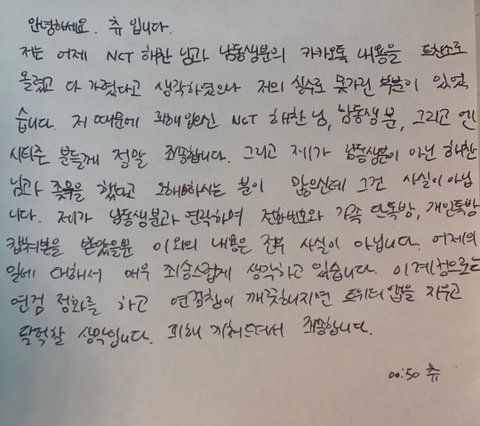 안녕하세요. 츄 입니다.
저는 어제 NCT 해찬 님과 남동생분의 카카오톡 내용을 트친소로
올렸고 다 가렸다고 생각하였으나 저의 실수로 못가린 부분이 있었
습니다. 저 때문에 피해 입으신 NCT 해찬 님, 남동생 분, 그리고 엔
시티즌 분들께 정말 죄송합니다. 그리고 제가 남동생분이 아닌 해찬
님과 좆목을 했다고 오해하시는 분이 많으신데 그건 사실이 아닙
니다. 제가 남동생분과 연락하여 전화번호와 가족 단톡방, 개인톡방
캡쳐본을 받았을뿐 이외의 내용은 전부 사실이 아닙니다. 어제의
일에 대해서 매우 죄송스럽게 생각하고 있습니다. 이 계정으로는
연검 정화를 하고 연검창이 깨끗해지면 트위터 앱을 지우고
탈덕할 생각입니다. 피해 끼쳐드려서 죄송합니다.
00:50 츄